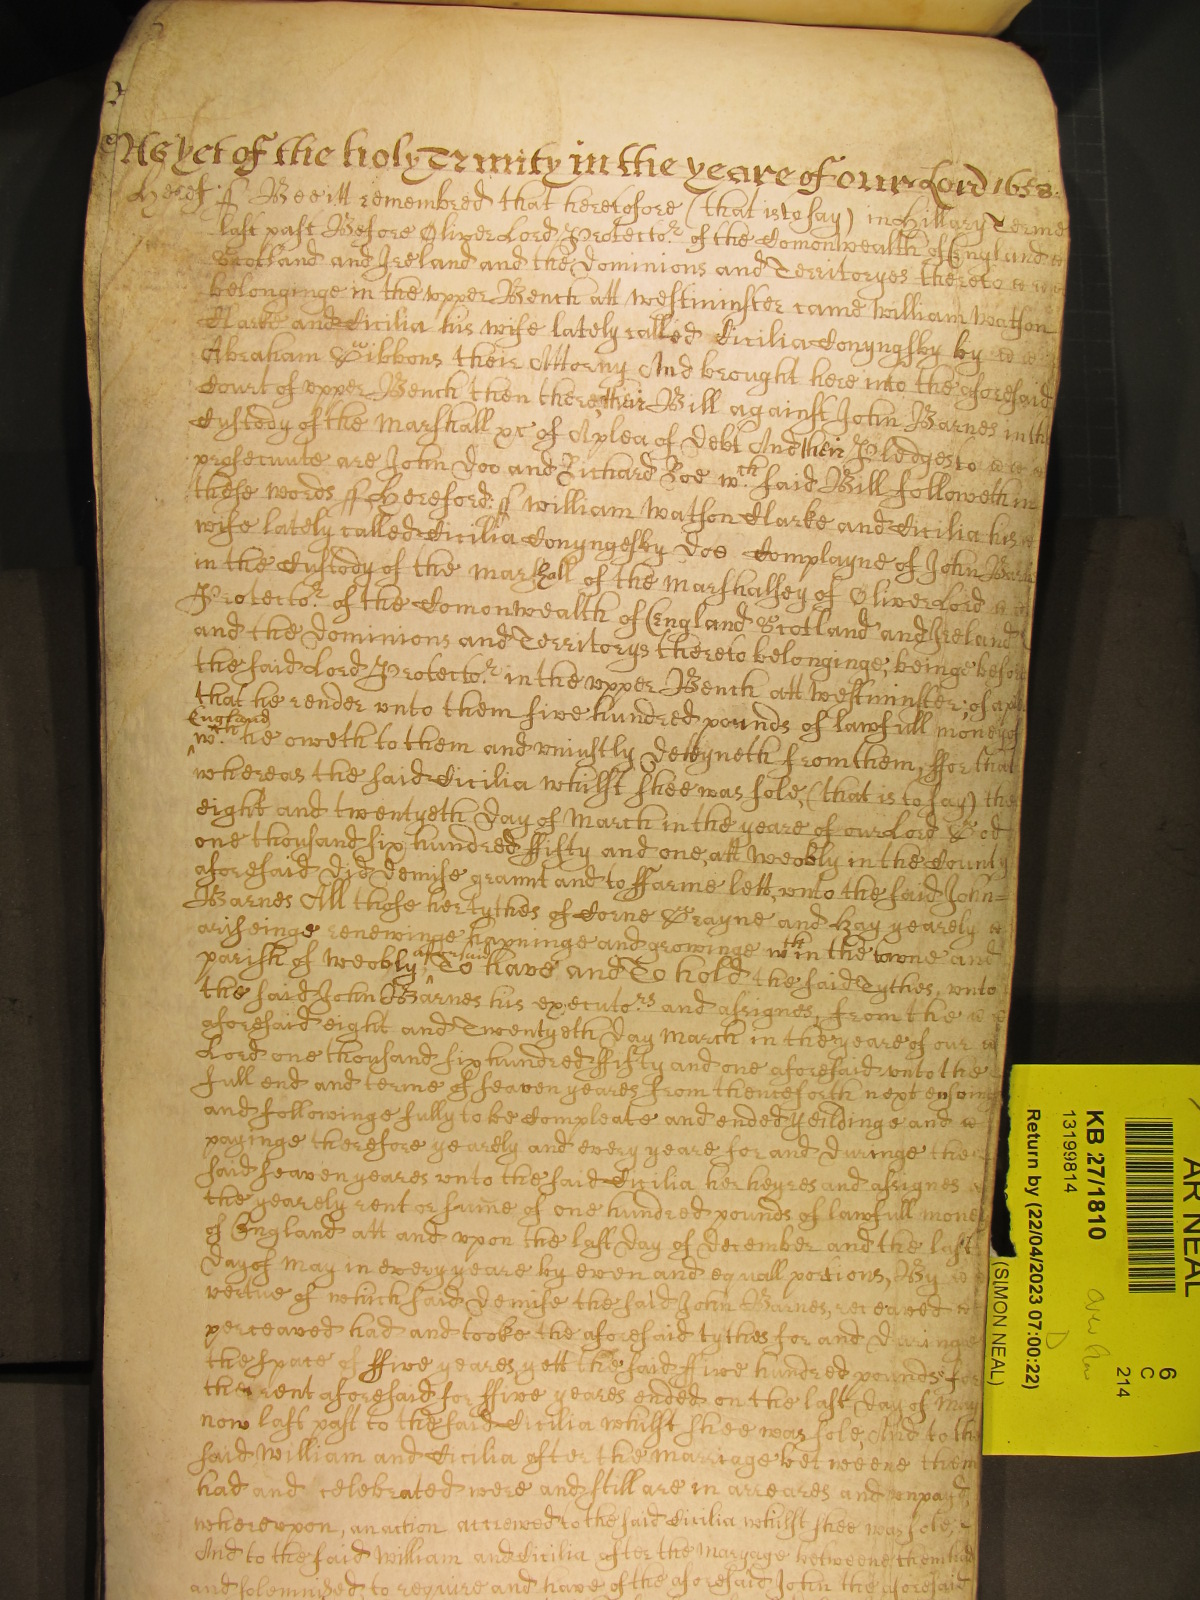 As yet of the holy Trinity in the yeare of our Lord 1658.
Heref: ss Bee itt remembred that heretofore (that is to say) in Hillary Terme
last past Before Oliver Lord Protector of the Comonwealth of England
Scotland and Ireland and the Dominions and Territoryes thereto
belonginge in the upper Bench att Westminster came William Watson
Clarke and Cicilia his wife lately called Cicilia Conyngsby by
Abraham Gibbons their Attorny And brought here into the aforesaid
Court of upper Bench then there their Bill against John Barnes in the
Custody of the Marshall &c of A plea of Debt And their Pledges to
prosecuute are John Doo and Richard Roe wch said Bill followeth in
these words ss Hereford: ss William Watson Clarke and Cicilia his
wife lately called Cicilia Conyngesby doe Complayne of John Barnes
in the Custody of the Marshall of the Marshalsey of Oliver Lord
Protector of the Comonwealth of England Scotland and Ireland
and the Dominions and Territorys thereto belonginge, beinge before
the said Lord Protector in the upper Bench att Westminster; of a plea
that he render unto them five hundred pounds of lawfull money of
England
wch he oweth to them and uniustly deteyneth from them, ffor that
whereas the said Cicilia whilst shee was sole, (that is to say) the
eight and twentyeth day of March in the yeare of our Lord God
one thousand six hundred ffifty and one, att Weobly in the County
aforesaid did demise graunt and to ffarme lett, unto the said John
Barnes All those her tythes of Corne Grayne and hay yearely
ariseinge renewinge happninge and growinge wthin the towne and
parish of Weobly aforesaid, To have and To hold the said Tythes, unto
the said John Barnes his executors and assignes, from the
aforesaid eight and Twentyeth day March in the yeare of our
Lord one thousand six hundred ffifty and one aforesaid unto the
full end and terme of seaven yeares from thenceforth next ensuing
and followinge fully to be Compleate and ended Yeildinge and
payinge therefore yearely and every yeare for and duringe the
said seaven yeares unto the said Cicilia her heyres and assignes
the yearely rent or sume of one hundred pounds of lawfull money
of England att and upon the last day of December and the last
day of May in every yeare by even and equall portions, By
vertue of which said demise the said John Barnes, receaved
perceaved had and tooke the aforesaid tythes for and duringe
the space of ffive yeares, yett the said ffive hundred pounds for
the rent aforesaid for ffive yeares ended on the last day of May
now last past to the said Cicilia whilst shee was sole, And to the
said William and Cicilia after the marriage betweene them
had and celebrated were and still are in arreares and unpayd,
whereupon, an action accrewed to the said Cicilia whilst shee was sole,
And to the said William and Cicilia after the Maryage betweene them had
and solemnized, to require and have of the aforesaid John the aforesaid
AR NEAL
KB 27/1810
13199814
Return by (22/04/2023 07:00:22)
(SIMON NEAL)
6
C
214
D